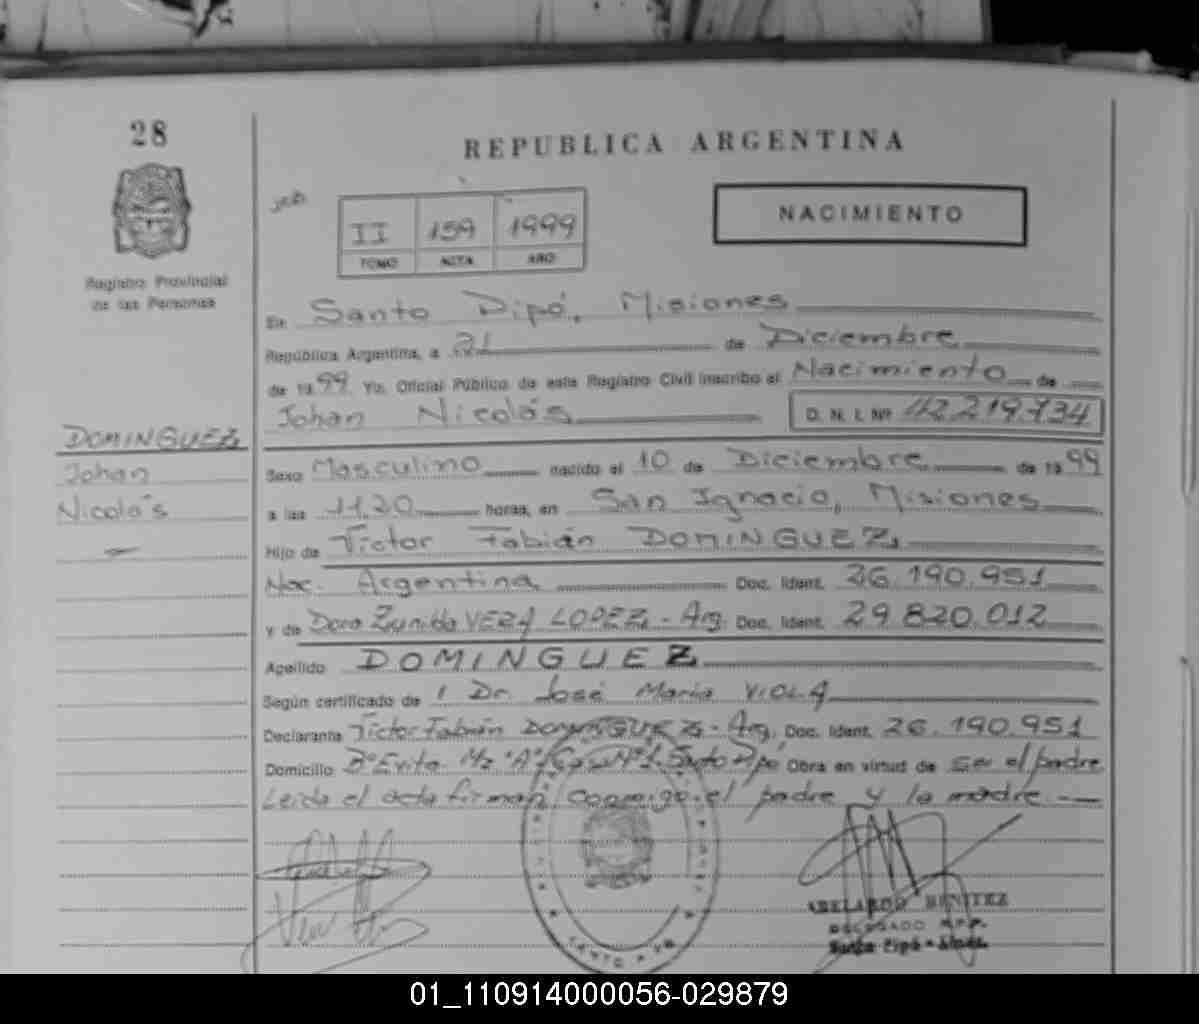 28
REPUBLICA ARGENTINA
Registro Provincial
de las Personas
II 159 1999
TOMO ACTA AÑO
NACIMIENTO
En Santo Pipó, Misiones
República Argentina, a 21 de Diciembre
de 1999 Yo, Oficial Público de este Registro Civil inscribo el Nacimiento de
Johan Nicolás D. N. I. Nº 42.219.734
DOMINGUEZ
Johan
Nicolás
Sexo Masculino nacido el 10 de Diciembre de 1999
a las 11.20 horas, en San Ignacio, Misiones
Hijo de Víctor Fabián DOMINGUEZ
Nac. Argentina Doc. Ident. 26.190.951
y de Dora Zunilda VERA LOPEZ - Arg. Doc. Ident. 29.820.012
Apellido DOMINGUEZ
Según certificado de Dr. José María VIOLA
Declarante Víctor Fabián DOMINGUEZ - Arg. Doc. Ident. 26.190.951
Domicilio Bº Evita Mz "A" Casa Nº 1 Santo Pipó Obra en virtud de ser el padre
Leida el acta firman conmigo el padre y la madre.—
ABELARDO BENITEZ
DELEGADO R.P.P.
Santo Pipó - Mnes.
01_110914000056-029879